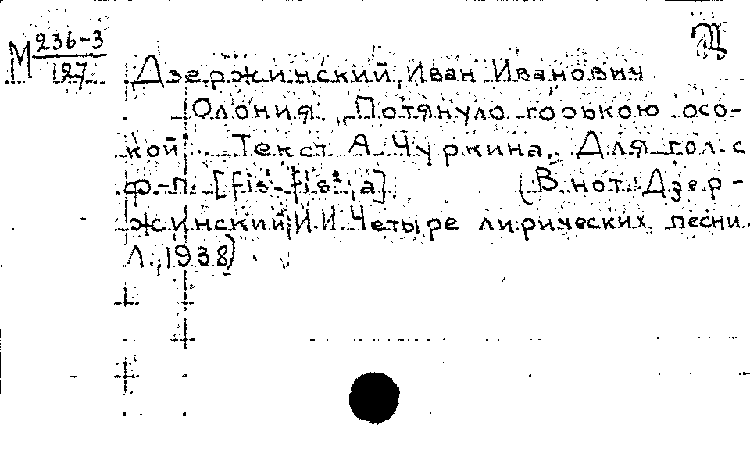 М 236-3
127
Дзержинский, Иван Иванович
Олония. Потянуло горькою осо-
кой. Текст А. Чуркина. Для гол. с
ф.-п. [fis¹-fis², a] (В нот. Дзер-
жинский, И.И. Четыре лирических песни.
Л., 1938)